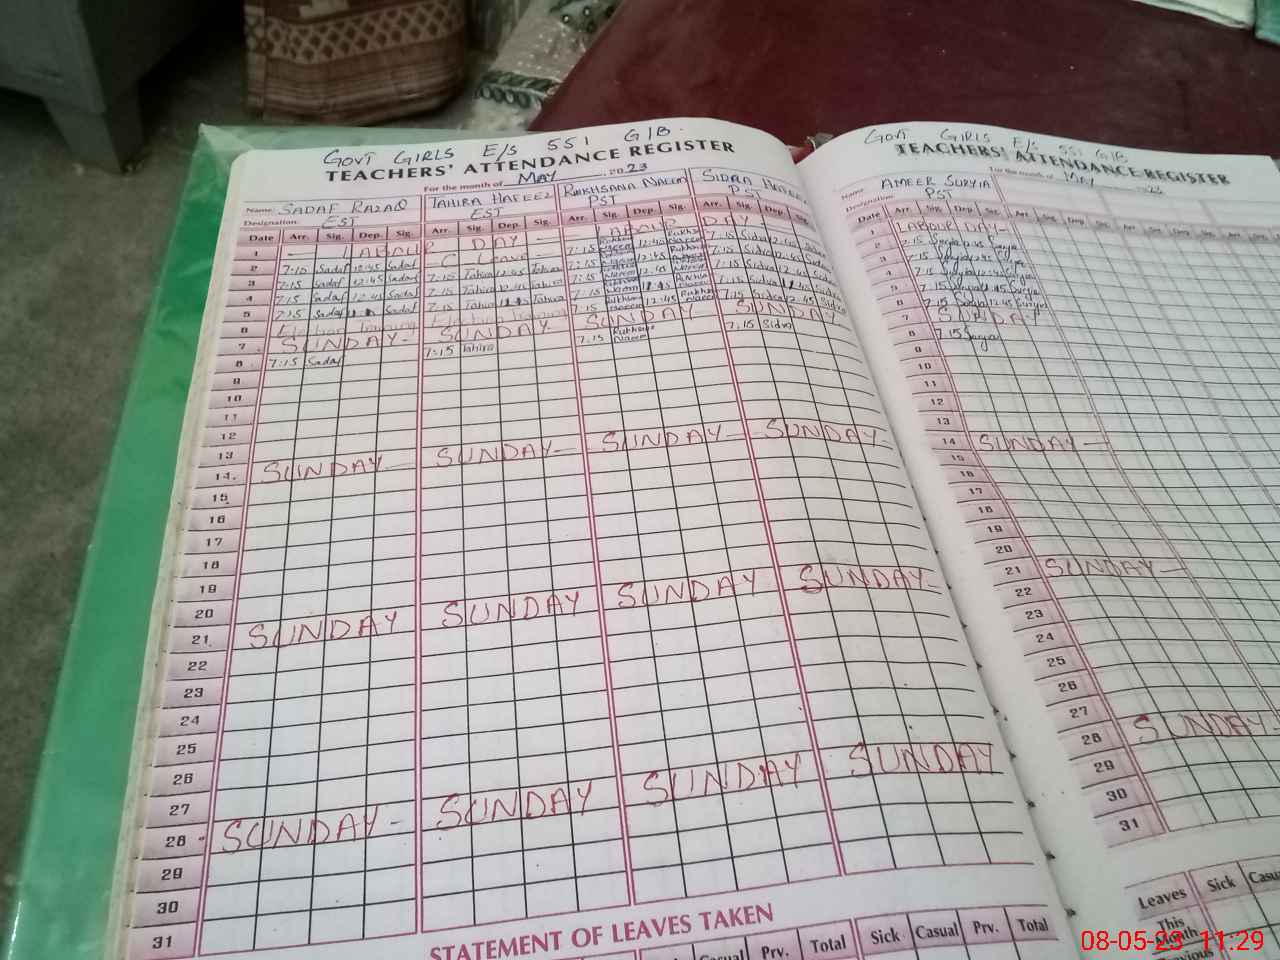 GOVT GIRLS E/S 551 G/B.
TEACHERS' ATTENDANCE REGISTER
For the month of MAY 2023
Name SADAF RAZAQ TAHIRA HAFEEZ RUKHSANA NAEEM SIDRA
Designation EST EST PST PST
Date Arr. Sig. Dep. Sig. Arr. Sig. Dep. Sig. Arr. Sig. Dep. Sig. Arr. Sig. Dep. Sig.
1 LABOUR DAY LABOUR DAY
2 7:15 Sadaf 12:45 Sadaf C Leave 7:15 12:45 7:15 Sidra 12:45
3 7:15 Sadaf 12:45 Sadaf 7:15 Tahira 12:45 Tahira 7:15 12:45 7:15 Sidra 12:45
4 7:15 Sadaf 12:45 Sadaf 7:15 Tahira 12:45 Tahira 7:15 12:45 7:15 Sidra 12:45
5 7:15 Sadaf Sadaf 7:15 Tahira Tahira 7:15 7:15 Sidra
6 7:15 12:45 7:15 Sidra 12:45 Sidra
7 SUNDAY SUNDAY SUNDAY SUNDAY
8 7:15 Sadaf 7:15 Tahira 7:15 Rukhsana Naeem 7:15 Sidra
9
10
11
12
13
14 SUNDAY SUNDAY SUNDAY SUNDAY
15
16
17
18
19
20
21 SUNDAY SUNDAY SUNDAY SUNDAY
22
23
24
25
26
27
28 SUNDAY SUNDAY SUNDAY SUNDAY
29
30
31
STATEMENT OF LEAVES TAKEN
Casual Prv. Total Sick Casual Prv. Total
GOVT GIRLS E/S 551 G/B
TEACHERS' ATTENDANCE REGISTER
For the month of MAY 23
Name AMEER SURYIA
Designation PST
Date Arr. Sig. Dep. Sig. Arr. Sig. Dep. Sig. Arr. Sig. Dep. Sig.
1 LABOUR DAY
2 7:15 Surya 12:45 Surya
3 7:15 Surya 12:45 Surya
4 7:15 Surya 12:45 Surya
5 7:15 Surya Surya
6 7:15 Surya 12:45 Surya
7 SUNDAY
8 7:15 Surya
9
10
11
12
13
14 SUNDAY
15
16
17
18
19
20
21 SUNDAY
22
23
24
25
26
27
28 SUNDAY
29
30
31
Leaves Sick
This Month
08-05-23 11:29